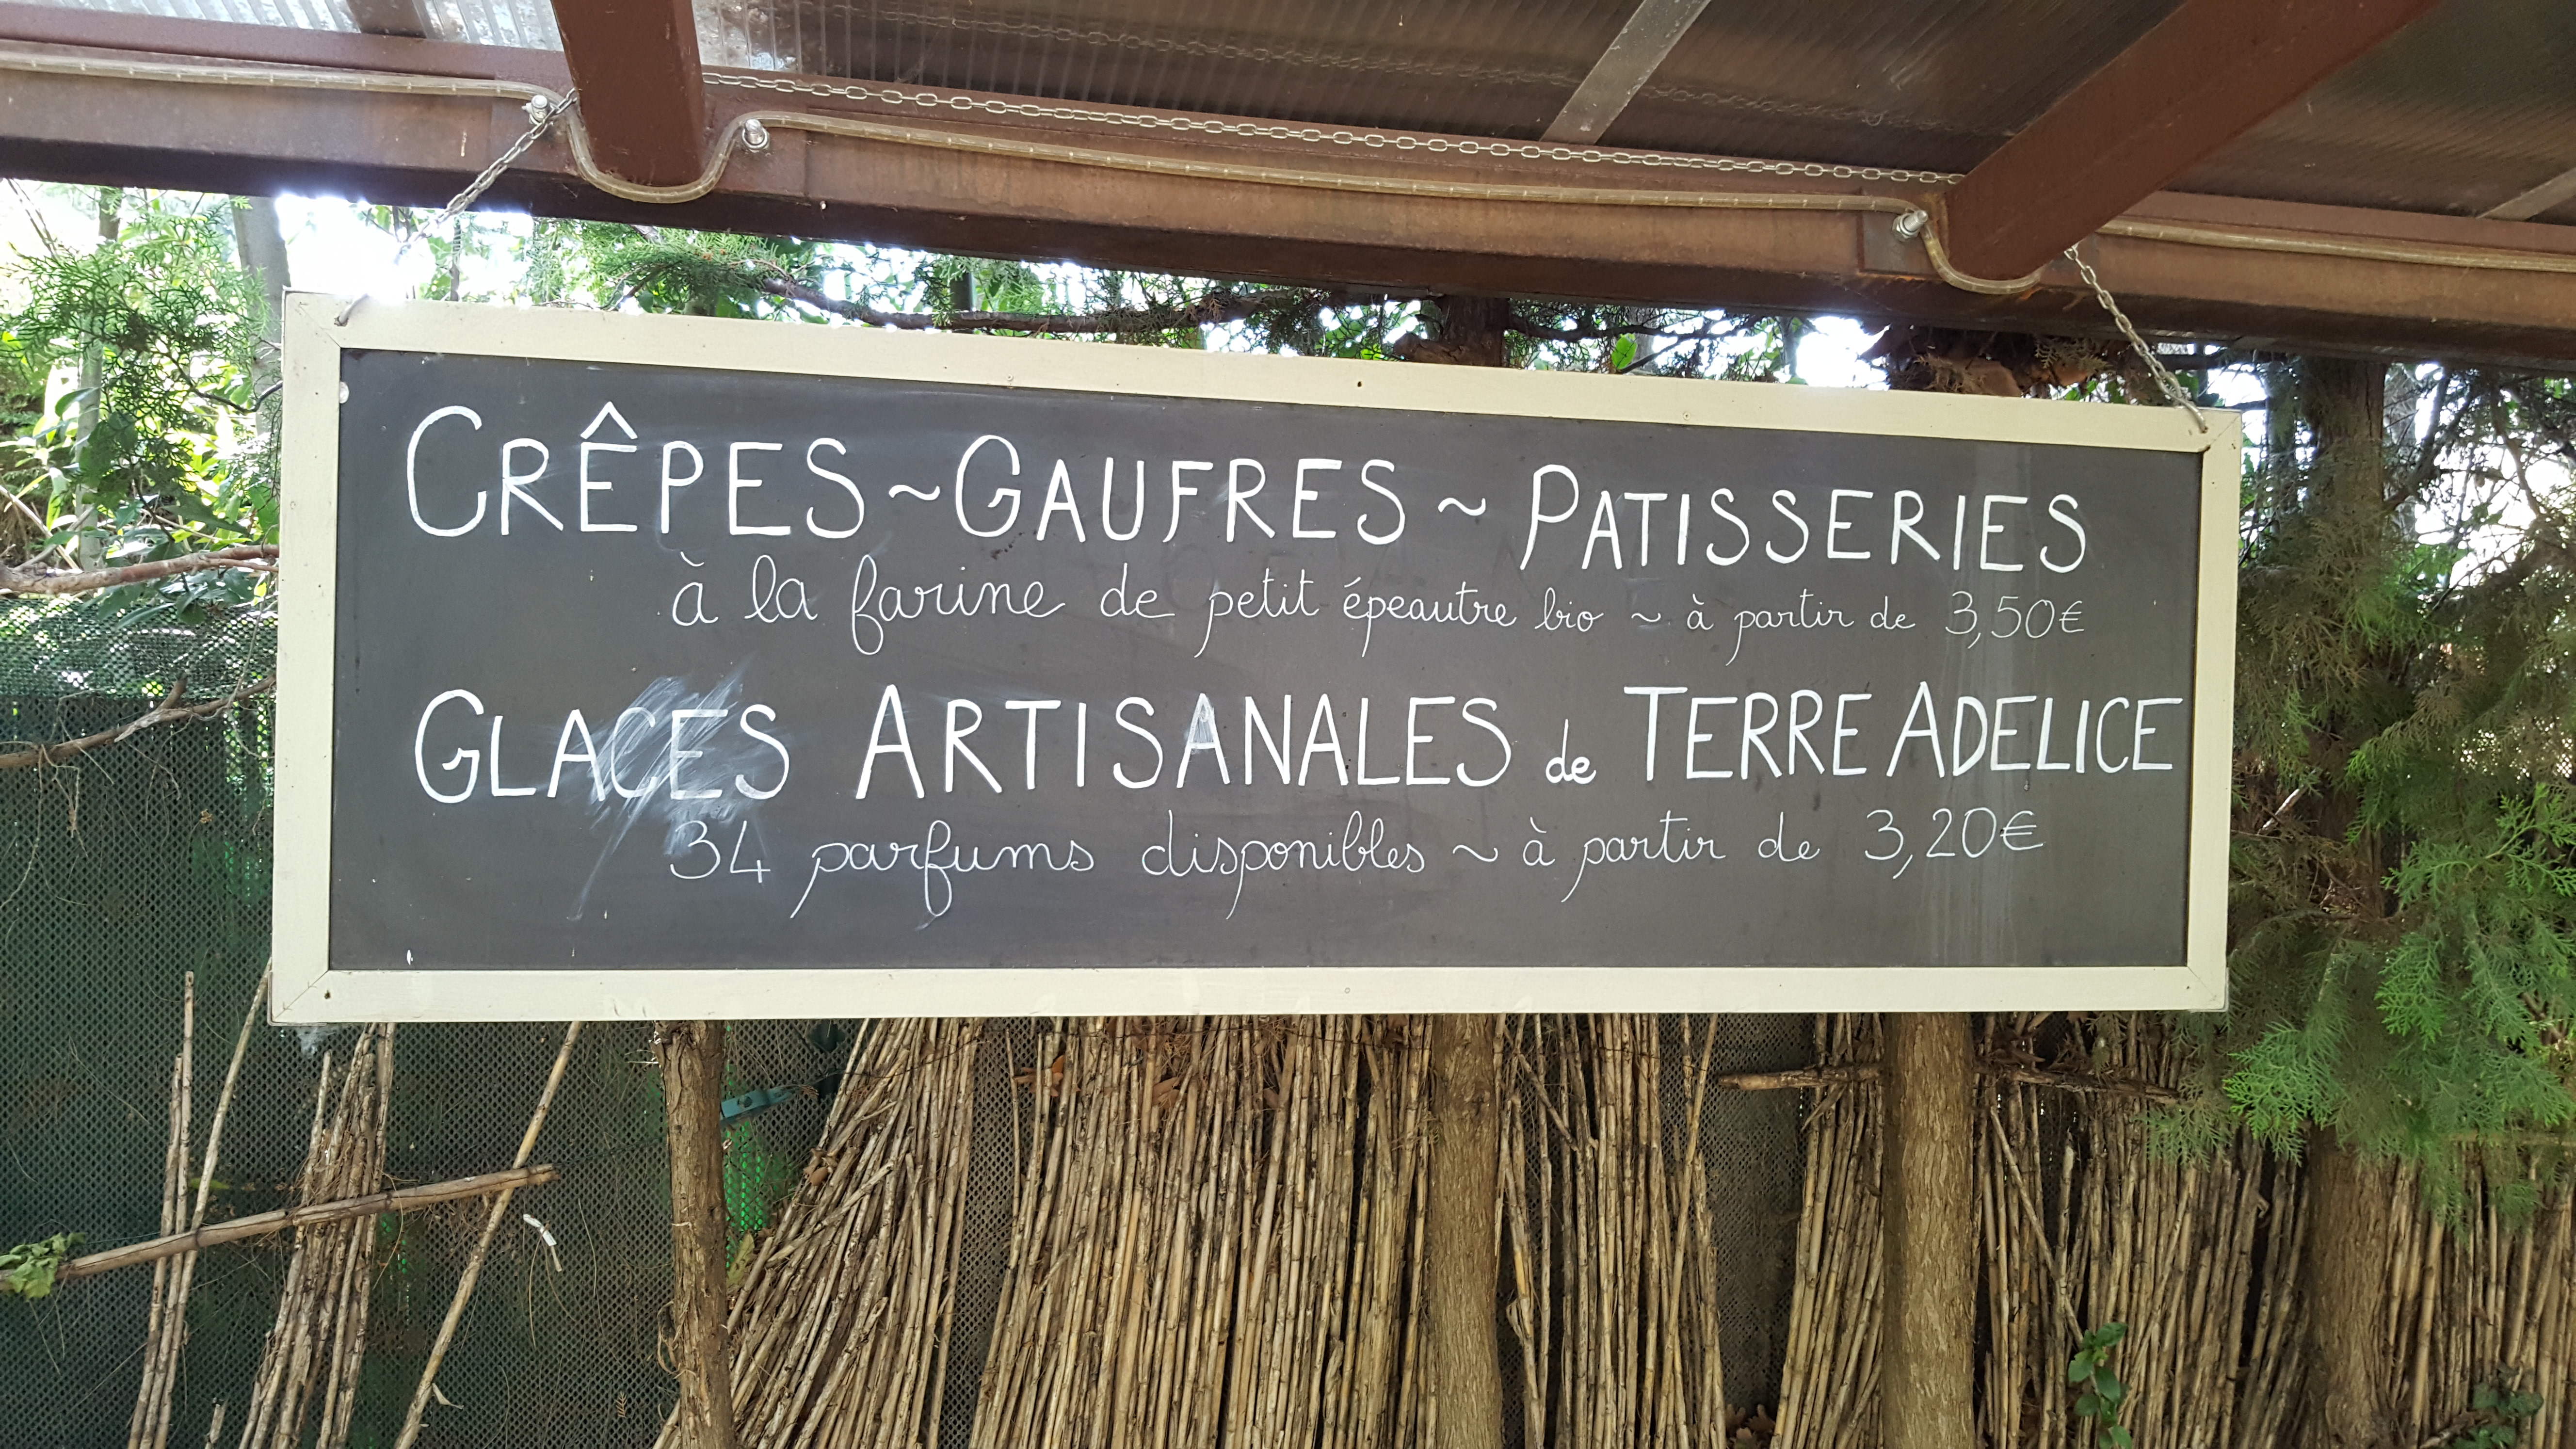 CRÊPES ~ GAUFRES ~ PATISSERIES
à la farine de petit épeautre bio ~ à partir de 3,50€
GLACES ARTISANALES de TERRE ADELICE
34 parfums disponibles ~ à partir de 3,20€